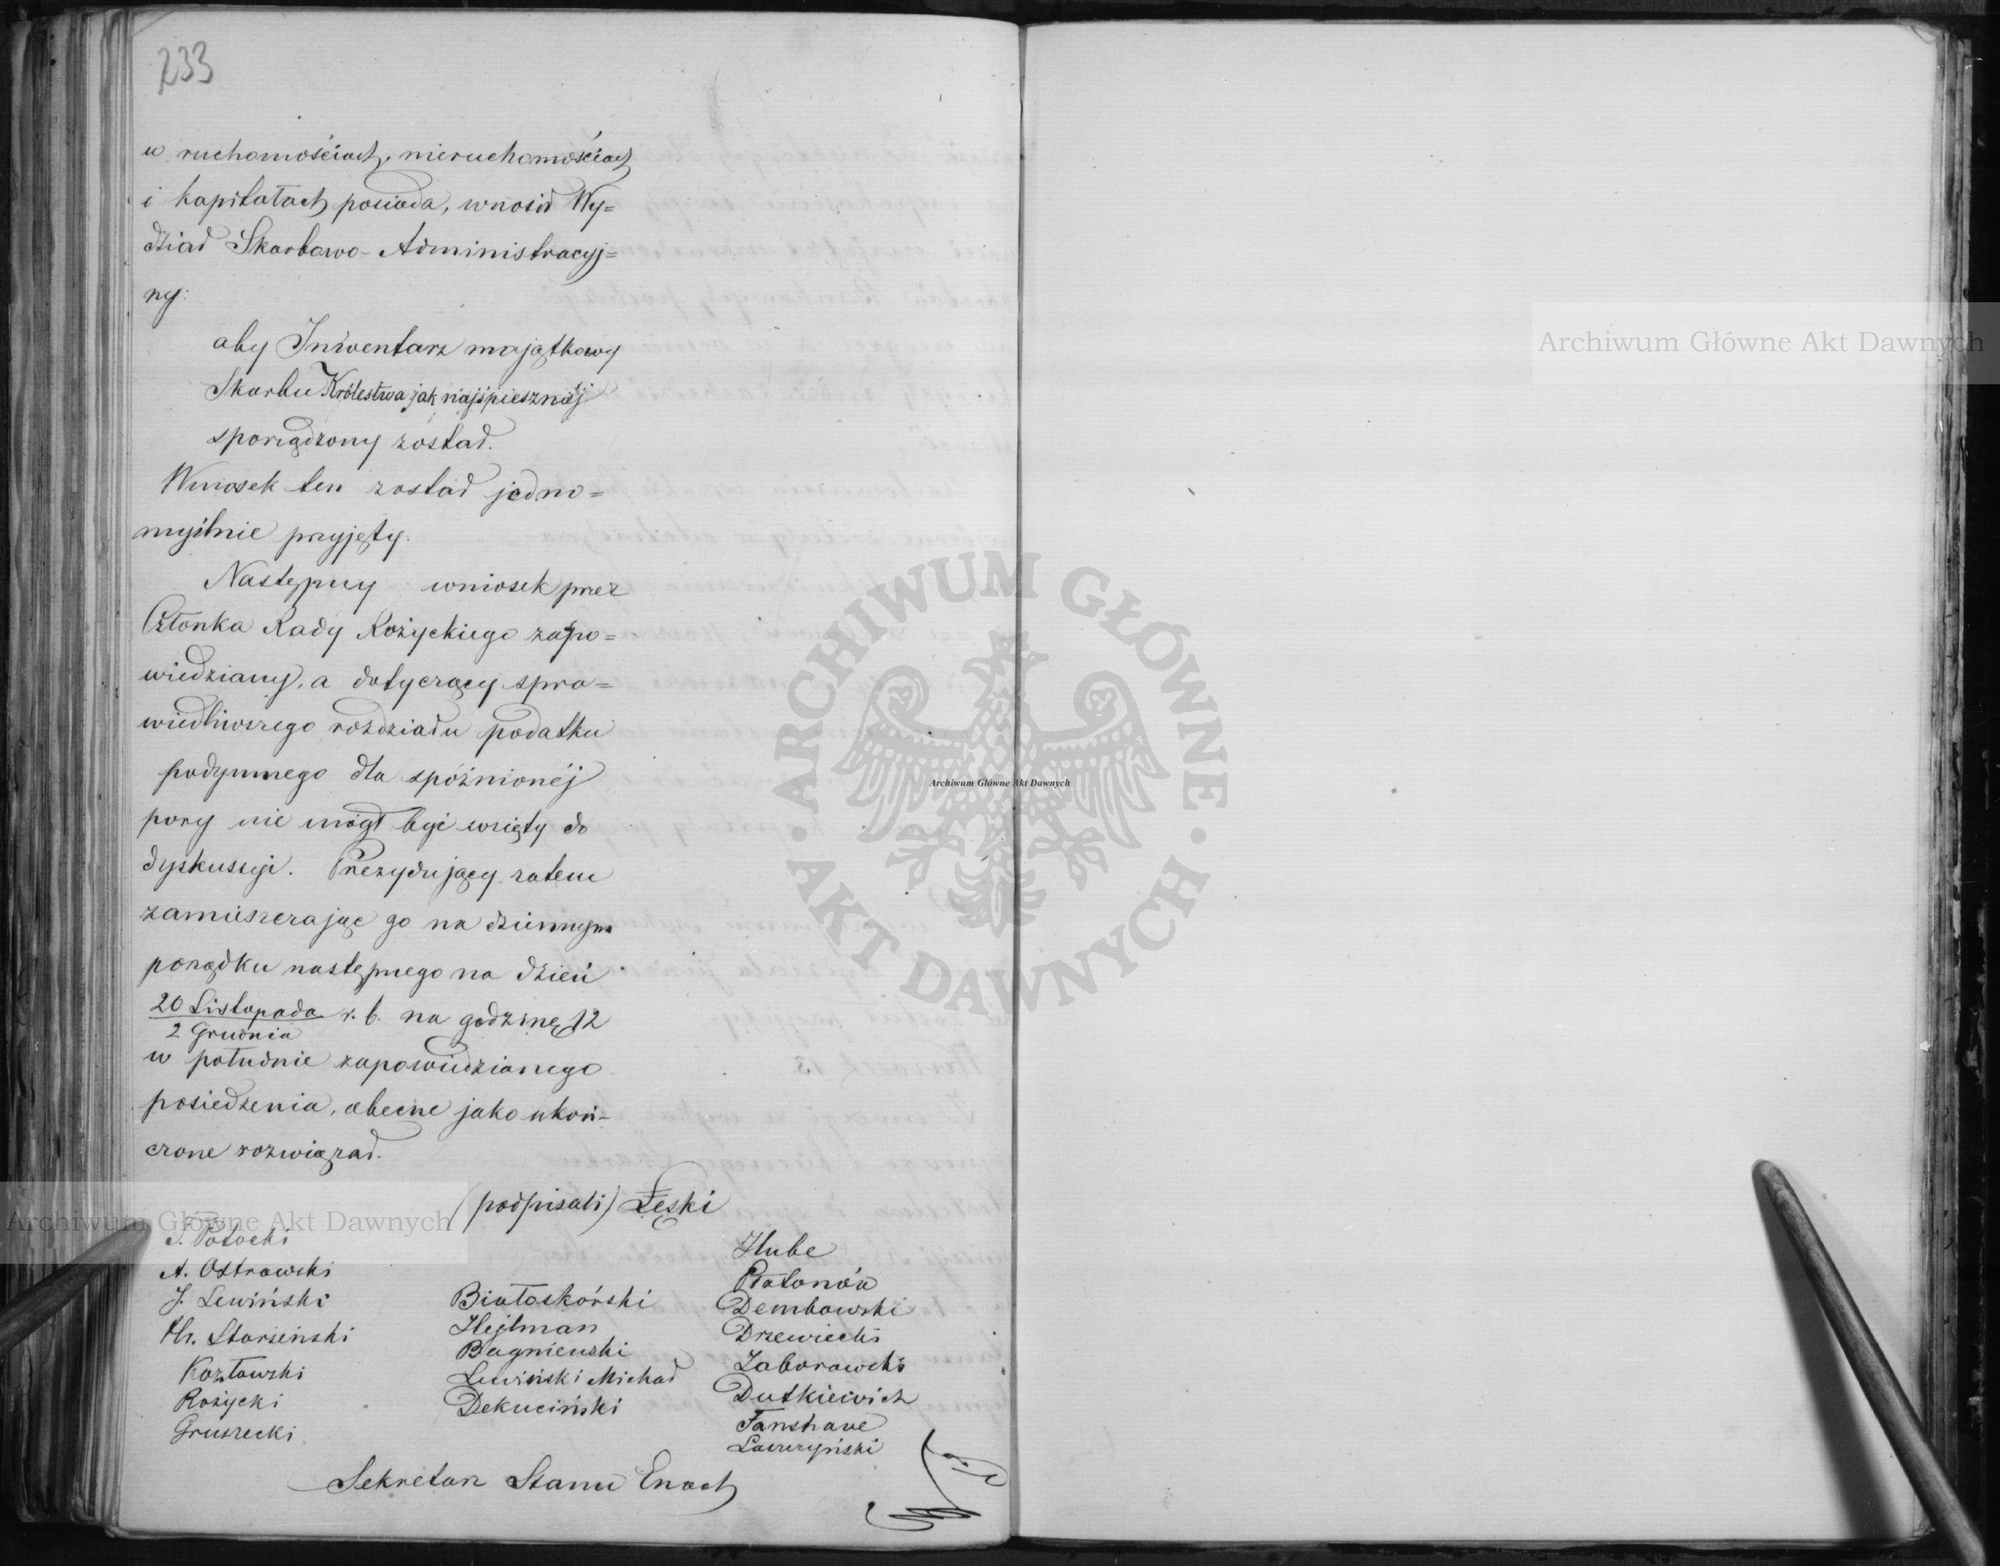 233
w ruchomościach, nieruchomościach
i kapitałach posiada, wnosił Wy=
dział Skarbowo-Administracyj=
ny:
aby Inwentarz majątkowy
Skarbu Królestwa jak najśpieszniéj
sporządzony został.
Wniosek ten został jedno=
myślnie przyjęty.
Następny wniosek przez
Członka Rady Rożyckiego zapo=
wiedziany, a dotyczący spra=
wiedliwszego rozdziału podatku
podymnego dla spóźnionéj
pory nie mógł być wzięty do
dyskussyi. Prezydujący zatem
zamieszczając go na dziennym
porządku następnego na dzień
20 Listopada
2 Grudnia
r. b. na godzinę 12
w południe zapowiedzianego
posiedzenia, obecne jako ukoń=
czone rozwiązał.
(podpisali) Łęski
J. Potocki
A. Ostrowski
J. Lewiński
Hr. Starzeński
Kozłowski
Rożycki
Gruszecki
Białoskórski
Hejlman
Bagnieuski
Lewiński Michał
Dekuciński
Hube
Płatonów
Dembowski
Drzewiecki
Zaborowski
Dutkiewicz
Fanshave
Łaszczyński
Sekretarz Stanu Enoch
Archiwum Główne Akt Dawnych
Archiwum Główne Akt Dawnych
Archiwum Główne Akt Dawnych
ARCHIWUM GŁÓWNE · AKT DAWNYCH ·